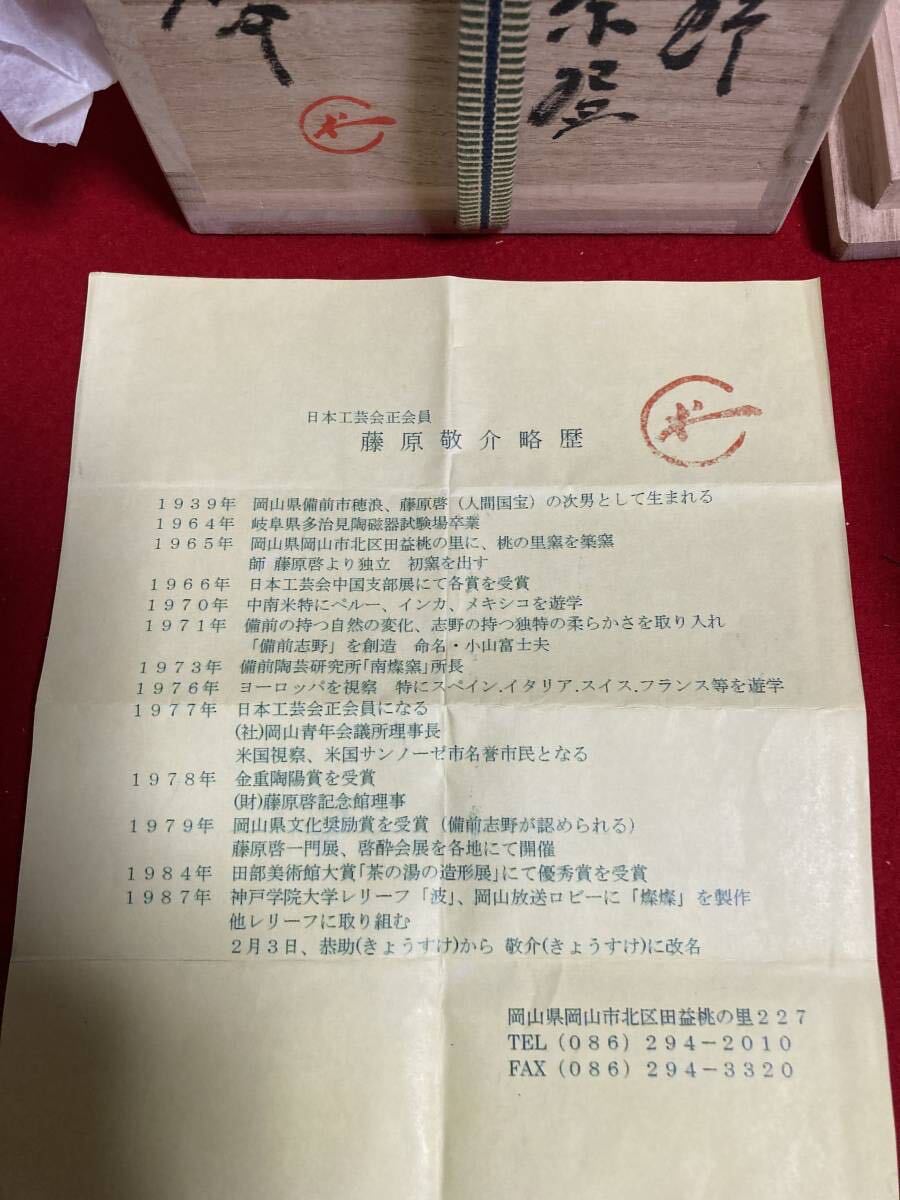 野
茶盌
日本工芸会正会員
藤原敬介略歴
1939年 岡山県備前市穂浪、藤原啓(人間国宝)の次男として生まれる
1964年 岐阜県多治見陶磁器試験場卒業
1965年 岡山県岡山市北区田益桃の里に、桃の里窯を築窯
師 藤原啓より独立 初窯を出す
1966年 日本工芸会中国支部展にて各賞を受賞
1970年 中南米特にペルー、インカ、メキシコを遊学
1971年 備前の持つ自然の変化、志野の持つ独特の柔らかさを取り入れ
「備前志野」を創造 命名・小山富士夫
1973年 備前陶芸研究所「南燦窯」所長
1976年 ヨーロッパを視察 特にスペイン.イタリア.スイス.フランス等を遊学
1977年 日本工芸会正会員になる
(社)岡山青年会議所理事長
米国視察、米国サンノーゼ市名誉市民となる
1978年 金重陶陽賞を受賞
(財)藤原啓記念館理事
1979年 岡山県文化奨励賞を受賞(備前志野が認められる)
藤原啓一門展、啓酔会展を各地にて開催
1984年 田部美術館大賞「茶の湯の造形展」にて優秀賞を受賞
1987年 神戸学院大学レリーフ「波」、岡山放送ロビーに「燦燦」を製作
他レリーフに取り組む
2月3日、恭助(きょうすけ)から 敬介(きょうすけ)に改名
岡山県岡山市北区田益桃の里227
TEL(086)294-2010
FAX(086)294-3320